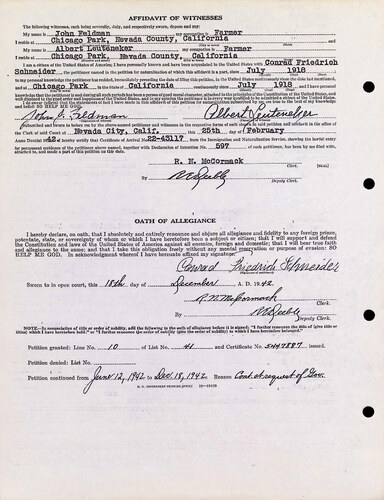 AFFIDAVIT OF WITNESSES
The following witnesses, each being severally, duly, and respectively sworn, depose and say:
My name is John Feldman , my occupation is Farmer
I reside at Chicago Park, Nevada County, California
My name is Albert Leuteneker , my occupation is Farmer
I reside at Chicago Park, Nevada County, California
I am a citizen of the United States of America; I have personally known and have been acquainted in the United States with Conrad Friedrich
Schneider , the petitioner named in the petition for naturalization of which this affidavit is a part, since July 1918
to my personal knowledge the petitioner has resided, immediately preceding the date of filing this petition, in the United States continuously since the date last mentioned,
and at Chicago Park , in the State of California continuously since July 1918 , and I have
personal knowledge that the petitioner is and during all such periods has been a person of good moral character, attached to the principles of the Constitution of the United States, and
John C. Feldman Albert Leutenekger
Subscribed and sworn to before me by the above-named petitioner and witnesses in the respective forms of oath shown in said petition and affidavit in the office of the
Clerk of said Court at Nevada City, Calif. this 25th day of February
Anno Domini 1942 I hereby certify that Certificate of Arrival No. 22-45117 from the Immigration and Naturalization Service, showing the lawful entry
for permanent residence of the petitioner above named, together with Declaration of Intention No. 597 of such petitioner, has been by me filed with,
attached to, and made a part of this petition on this date.
R. N. McCormack
Clerk.
By
Deputy Clerk.
OATH OF ALLEGIANCE
I hereby declare, on oath, that I absolutely and entirely renounce and abjure all allegiance and fidelity to any foreign prince,
potentate, state, or sovereignty of whom or which I have heretofore been a subject or citizen; that I will support and defend
the Constitution and laws of the United States of America against all enemies, foreign and domestic; that I will bear true faith
and allegiance to the same; and that I take this obligation freely without any mental reservation or purpose of evasion: SO
HELP ME GOD. In acknowledgment whereof I have hereunto affixed my signature.
Conrad Friedrich Schneider
Sworn to in open court, this 18th day of December , A. D. 1942
R. N. McCormack
Clerk.
By
Deputy Clerk.
NOTE.—In renunciation of title or order of nobility, add the following to the oath of allegiance before it is signed: "I further renounce the title of (give title or
titles) which I have heretofore held", or "I further renounce the order of nobility (give the order of nobility) to which I have heretofore belonged."
Petition granted: Line No. 10 of List No. 41 and Certificate No. 5447887 issued.
Petition denied: List No.
Petition continued from June 12, 1942 to Dec. 18, 1942 Reason Cont. at request of Gov.